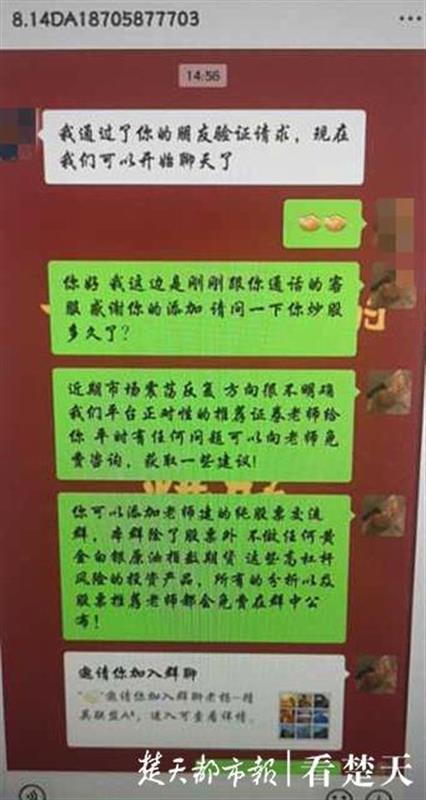 8.14DA18705877703
14:56
我通过了你的朋友验证请求，现在
我们可以开始聊天了
你好 我这边是刚刚跟你通话的客
服 感谢你的添加 请问一下你炒股
多久了？
近期市场震荡反复 方向很不明确
我们平台正对性的推荐证券老师给
你 平时有任何问题可以向老师免
费咨询，获取一些建议!
你可以添加老师建的纯股票交流
群，本群除了股票外 不做任何黄
金白银原油指数期货 这些高杠杆
风险的投资产品，所有的分析以及
股票推荐老师都会免费在群中公
布！
邀请你加入群聊
邀请你加入群聊老杨-精
英联盟A¹，进入可查看详情。
楚天都市報|看楚天